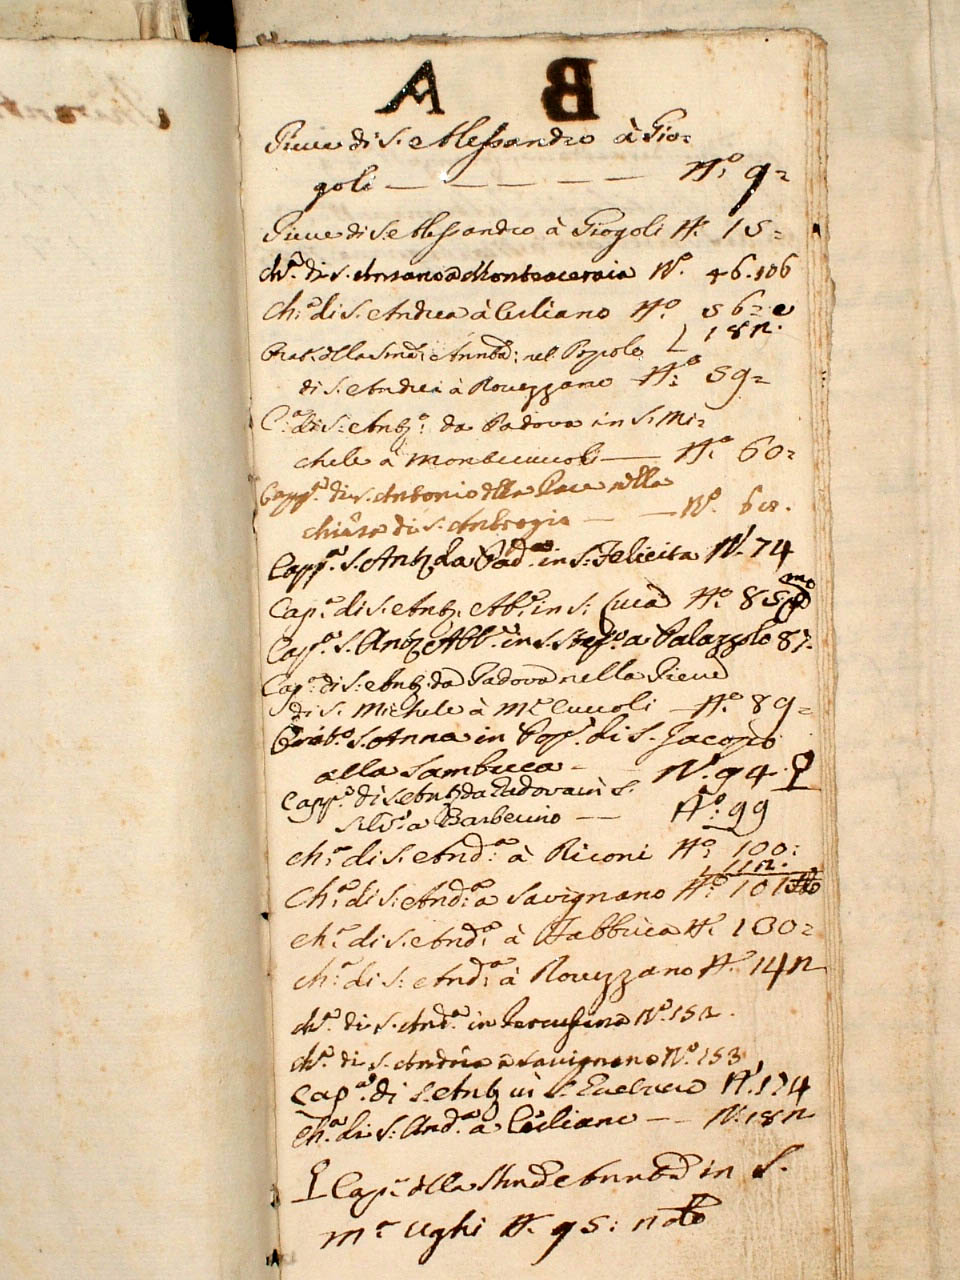 A B
Pieve di S. Alessandro à Gio=
goli — — — — — — N.º 9=
Pieve di S. Alessandro à Giogoli N. 15=
Ch.ª di S. Ansano a Monteaceraia N.º 46. 106
Ch.ª di S. Andrea à Ciciliano N.º 56= e
182.
Orat. della Smã: Annũ: nel Popolo
di S. Andrea à Rovezzano N.º 59=
C.ª di S. Antº: da Padova in S. Mi=
chele à Montecuccoli — N.º 60=
Capp.ª di S. Antonio della Pace nella
chiesa di S. Ambrogio — — N.º 62.
Capp.ª S. Antº da Pad.ª in S. Felicita N.º 74
Cap.ª di S. Antº. Ab.ᵉ in S. Lucia N.º 85
Capp.ª S. Antº Abb.ᵉ in S. Steff.º a Palazzolo 87.
Cap.ª di S. Antº da Padova nella Pieve
di S. Michele à M.ᵉ Cuccoli — N.º 89=
Orat.º S. Anna in Pop.º di S. Jacopo
alla Sambuca — — N.º 94.
Capp.ª di S. Antº da Padova in S.
Silv.º a Barberino — N.º 99
Ch.ª di S. And.ª à Riconi N.º 100:
112.
Ch.ª di S. And.ª a Savignano N.º 101
Ch.ª di S. And.ª à Fabbrica N.º 130=
Ch.ª di S. And.ª à Rovezzano N.º 142
Ch.ª di S. And.ª in N.º 152.
Ch.ª di S. Andrea a Savignano N.º 153
Cap.ª di S. Antº in S. N.º 174
Ch.ª di S. And.ª a Ciciliano — — N.º 182
Cap.ª della Annũ in S.
M.ª Ughi N. 95: